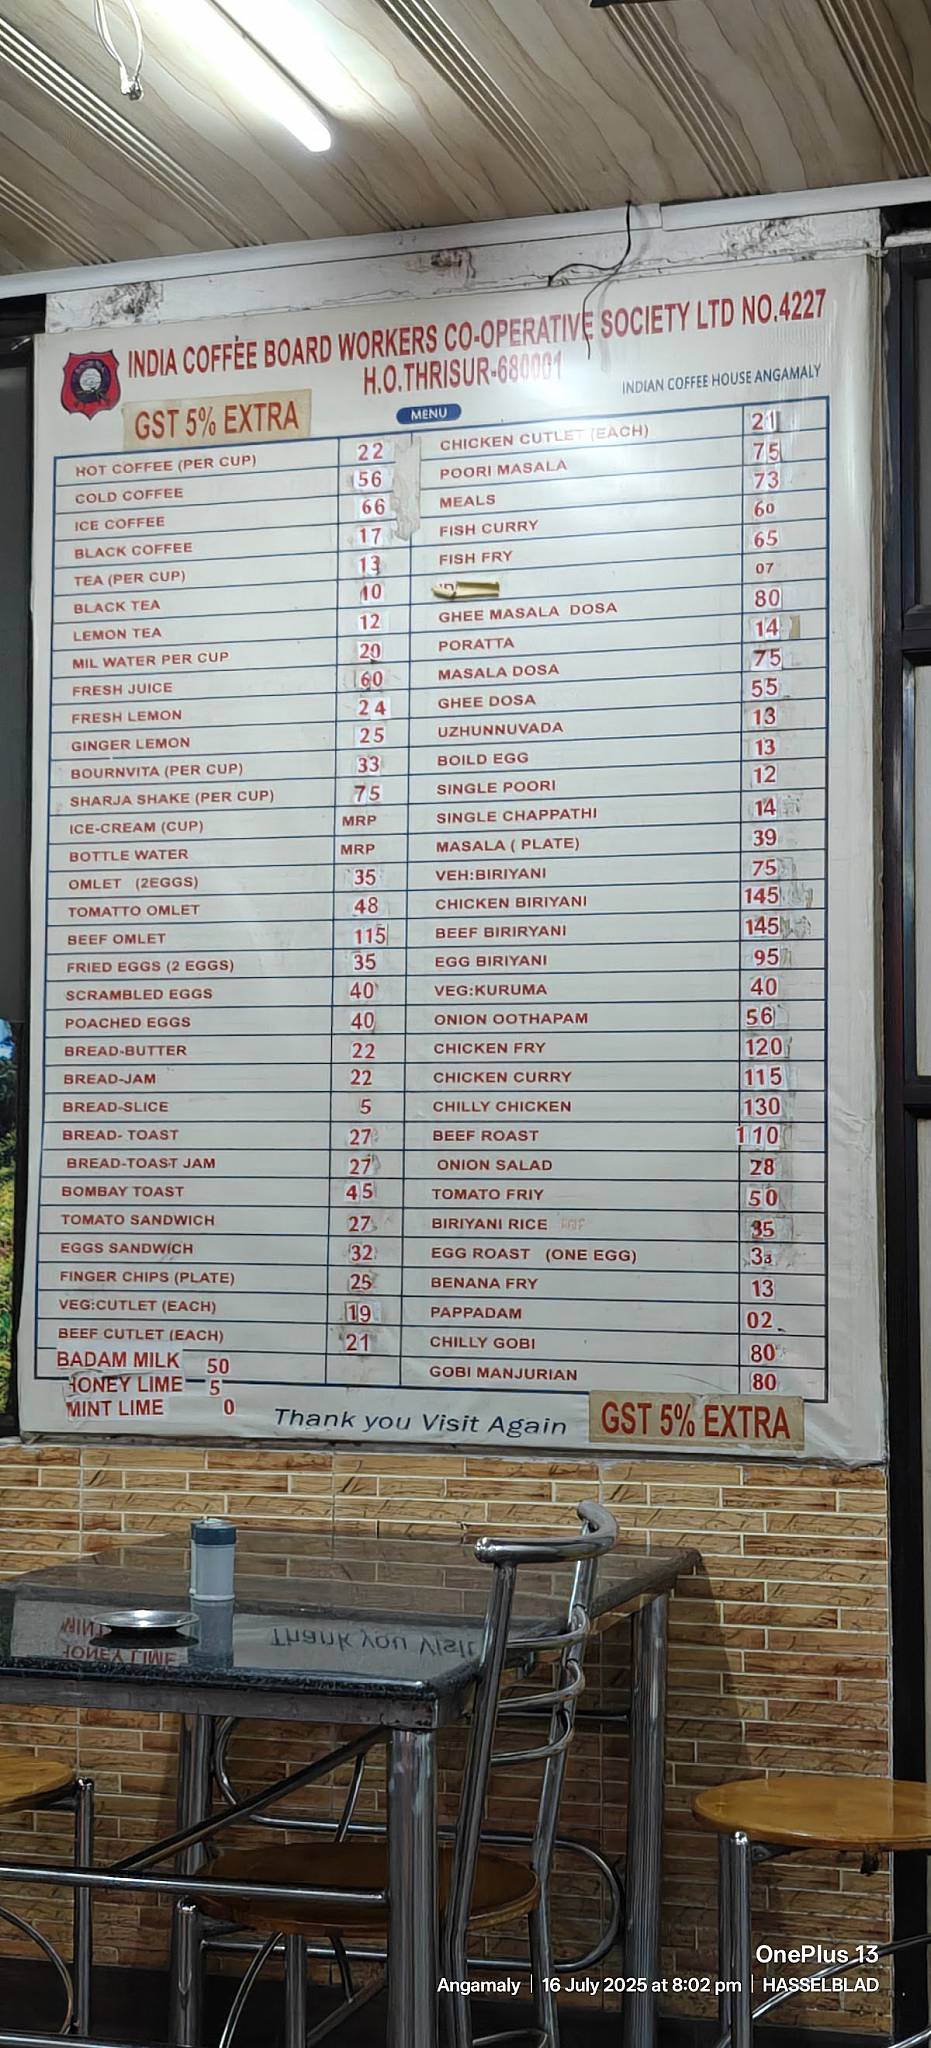 INDIA COFFEE BOARD WORKERS CO-OPERATIVE SOCIETY LTD NO.4227
H.O.THRISUR-680001
INDIAN COFFEE HOUSE ANGAMALY
GST 5% EXTRA
MENU
HOT COFFEE (PER CUP) 22
COLD COFFEE 56
ICE COFFEE 66
BLACK COFFEE 17
TEA (PER CUP) 13
BLACK TEA 10
LEMON TEA 12
MIL WATER PER CUP 20
FRESH JUICE 60
FRESH LEMON 24
GINGER LEMON 25
BOURNVITA (PER CUP) 33
SHARJA SHAKE (PER CUP) 75
ICE-CREAM (CUP) MRP
BOTTLE WATER MRP
OMLET (2EGGS) 35
TOMATTO OMLET 48
BEEF OMLET 115
FRIED EGGS (2 EGGS) 35
SCRAMBLED EGGS 40
POACHED EGGS 40
BREAD-BUTTER 22
BREAD-JAM 22
BREAD-SLICE 5
BREAD- TOAST 27
BREAD-TOAST JAM 27
BOMBAY TOAST 45
TOMATO SANDWICH 27
EGGS SANDWICH 32
FINGER CHIPS (PLATE) 25
VEG:CUTLET (EACH) 19
BEEF CUTLET (EACH) 21
BADAM MILK 50
HONEY LIME 5
MINT LIME 0
CHICKEN CUTLET (EACH) 21
POORI MASALA 75
MEALS 73
FISH CURRY 60
FISH FRY 65
07
GHEE MASALA DOSA 80
PORATTA 14
MASALA DOSA 75
GHEE DOSA 55
UZHUNNUVADA 13
BOILD EGG 13
SINGLE POORI 12
SINGLE CHAPPATHI 14
MASALA ( PLATE) 39
VEH:BIRIYANI 75
CHICKEN BIRIYANI 145
BEEF BIRIRYANI 145
EGG BIRIYANI 95
VEG:KURUMA 40
ONION OOTHAPAM 56
CHICKEN FRY 120
CHICKEN CURRY 115
CHILLY CHICKEN 130
BEEF ROAST 110
ONION SALAD 28
TOMATO FRIY 50
BIRIYANI RICE 35
EGG ROAST (ONE EGG) 33
BENANA FRY 13
PAPPADAM 02
CHILLY GOBI 80
GOBI MANJURIAN 80
Thank you Visit Again
GST 5% EXTRA
OnePlus 13
Angamaly | 16 July 2025 at 8:02 pm | HASSELBLAD